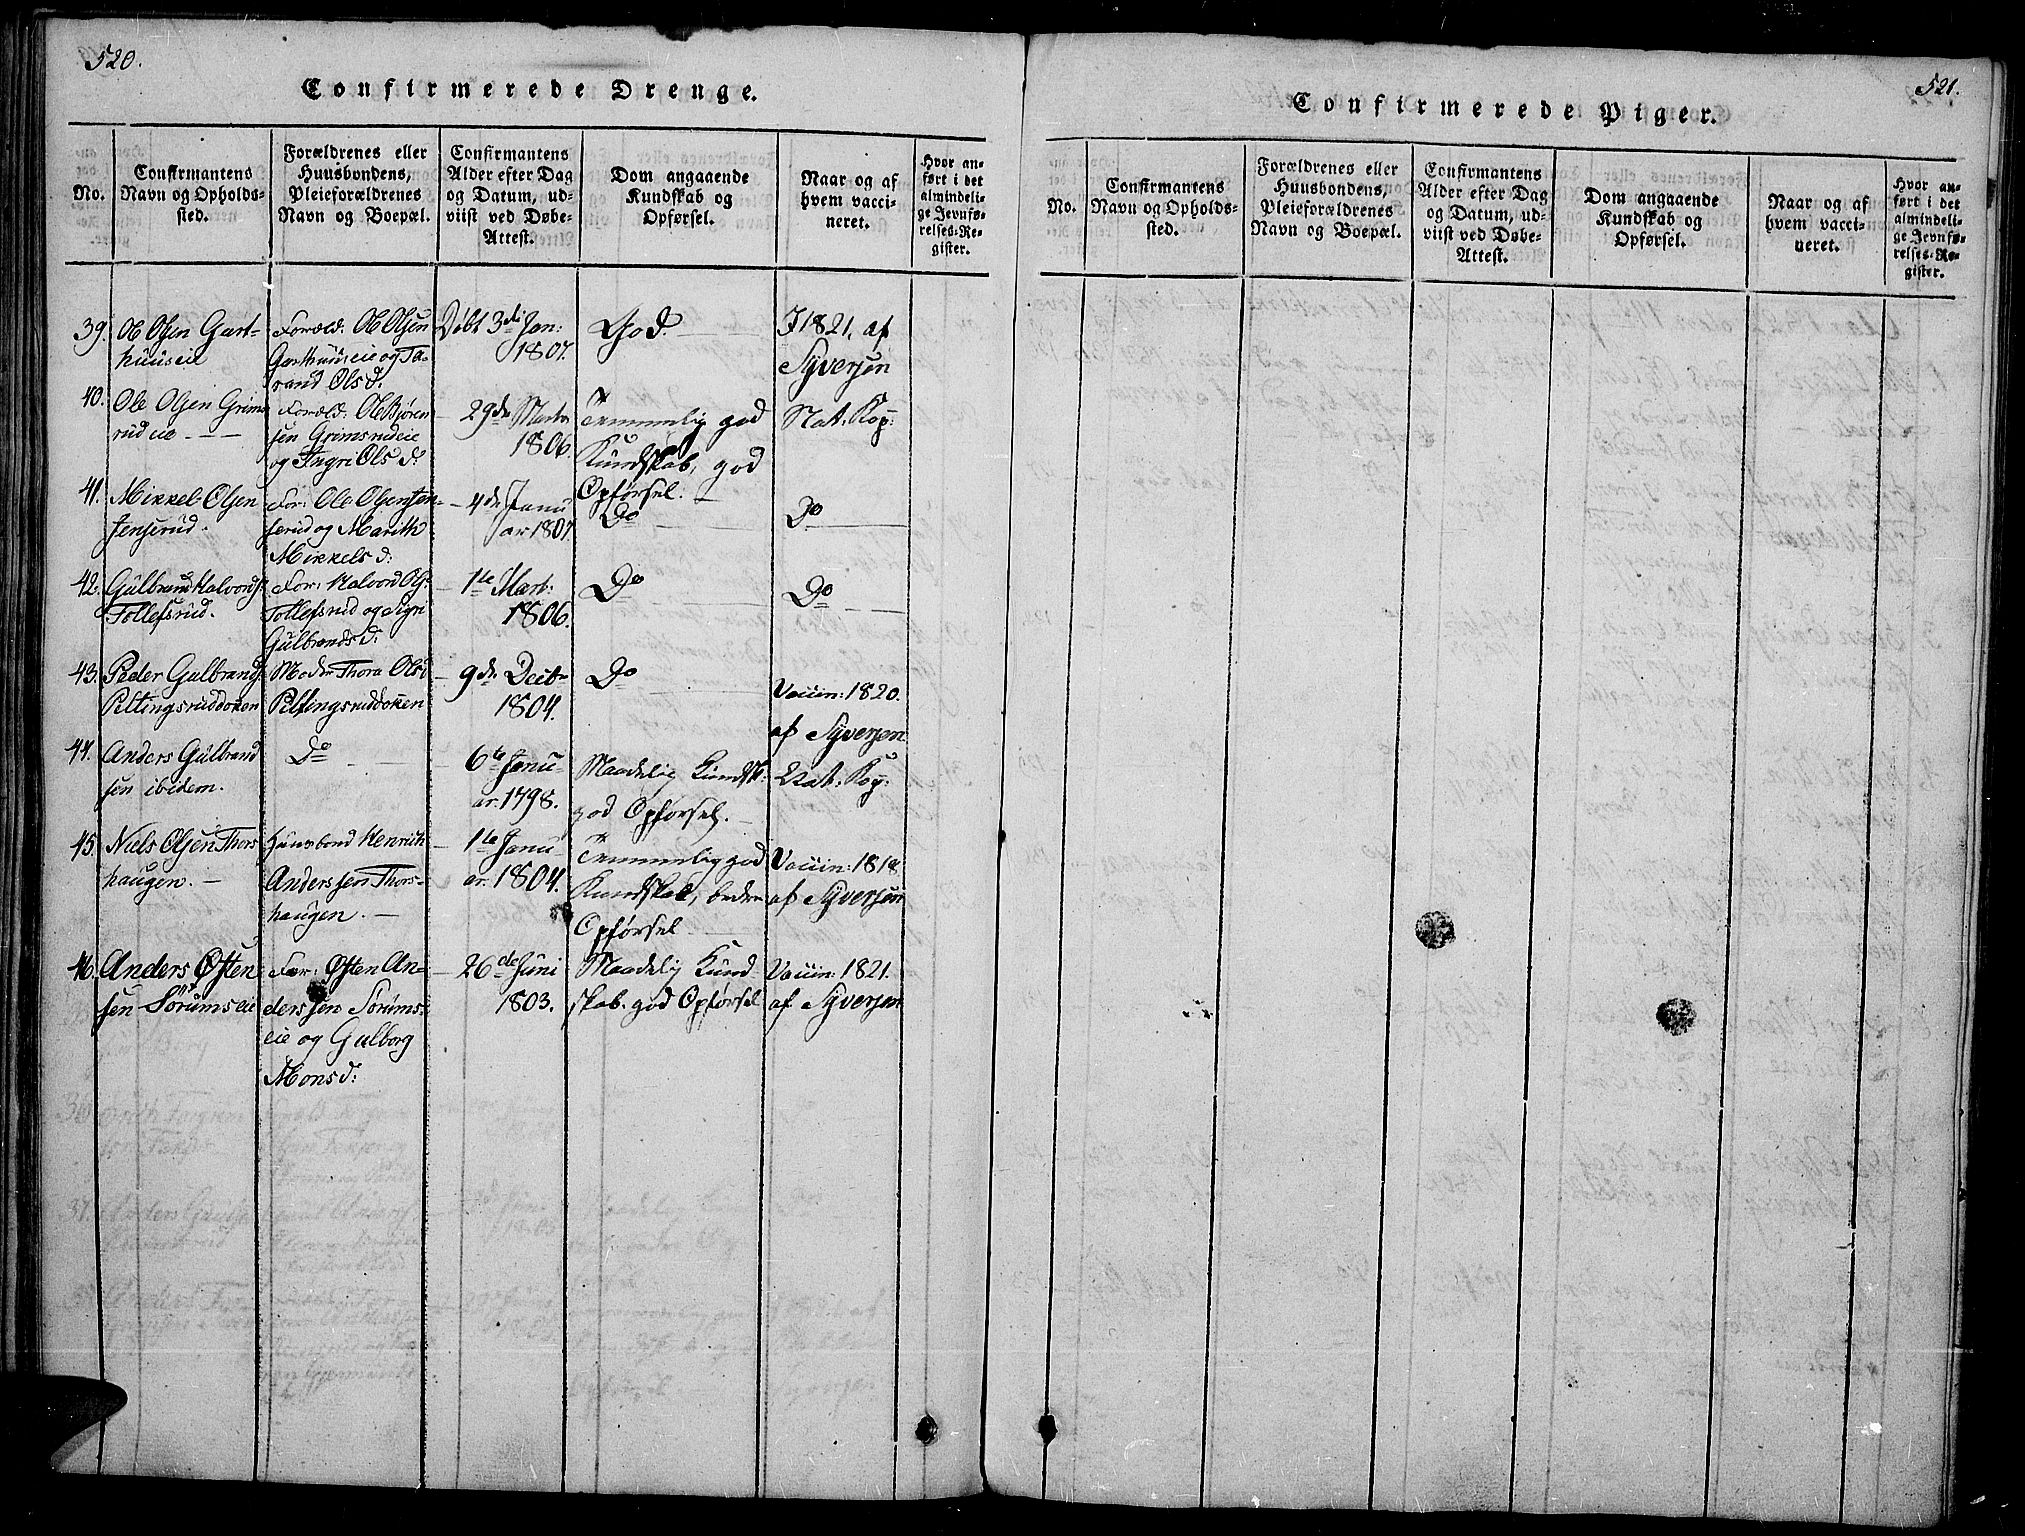 520.
Confirmerede Drenge.
No.
Confirmantens
Navn og Opholds-
sted.
Forældrenes eller
Huusbondens,
Pleieforældrenes
Navn og Boepæl.
Confirmantens
Alder efter Dag
og Datum, ud-
viist ved Døbe-
Attest.
Dom angaaende
Kundskab og
Opførsel.
Naar og af
hvem vacci-
neret.
Hvor an-
ført i det
almindeli-
ge Jevnfø-
relses-Re-
gister.
39.
Ole Olsen Gart-
huuseie
Foræld: Ole Olsen
Garthuuseie og Ta-
rand Olsd.
Døbt 3de Jan:
1807.
God.
I 1821. af
Syversen
40.
Ole Olsen Grims
rudeie
Foræld: Ole Bjøren
sen Grimsrudeie
og Ingri Olsd:
29de Marts
1806.
Temmelig god
Kundskab, god
Opførsel.
Nat: Kop:
41.
Mikkel Olsen
Jenserud.
For: Ole Olsen Jen-
serud og Marith
Mikkelsd:
4de Janu
ar 1807
Do
Do
42.
Gulbrand Halvords:
Tollefsrud.
For: Halvord Ols:
Tollefsrud og Sigri
Gulbrandsd:
1te Mart:
1806.
Do
Do
43.
Peder Gulbrands:
Peltingsruddokken
Moder Thora Olsd
Peltingsruddokken
9de Decbr
1804.
Do
Vaccin: 1820.
af Syversen
44.
Anders Gulbrand
sen ibidem.
Do
6te Janu-
ar 1798.
Maadelig Kundsk:
god Opførsel.
Nat: Kop:
45.
Niels Olsen Thors
haugen.
Huusbond Henrich
Anderssen Thors-
haugen.
1te Janu-
ar 1804.
Temmelig god
Kundskab, bedre
Opførsel
Vaccin: 1818
af Syversen
46.
Anders Østen
sen Sørumseie
For: Østen An-
derssen Sørums-
eie og Gulborg
Monsd:
26de Juni
1803.
Maadelig Kund
skab. god Opførsel
Vaccin: 1821.
af Syversen
521.
Confirmerede Piger.
No.
Confirmantens
Navn og Opholds-
sted.
Forældrenes eller
Huusbondens,
Pleieforældrenes
Navn og Boepæl.
Confirmantens
Alder efter Dag
og Datum, ud-
viist ved Døbe-
Attest.
Dom angaaende
Kundskab og
Opførsel.
Naar og af
hvem vacci-
neret.
Hvor an-
ført i det
almindeli-
ge Jevnfø-
relses-Re-
gister.